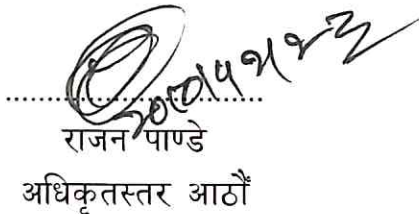 राजन पाण्डे
अधिकृतस्तर आठौं